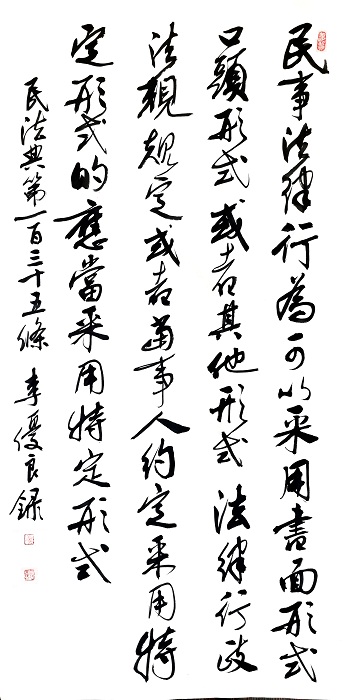 民事法律行為可以采用書面形式
口頭形式或者其他形式法律行政
法規規定或者當事人約定采用特
定形式的應當采用特定形式
民法典第一百三十五條 李優良錄